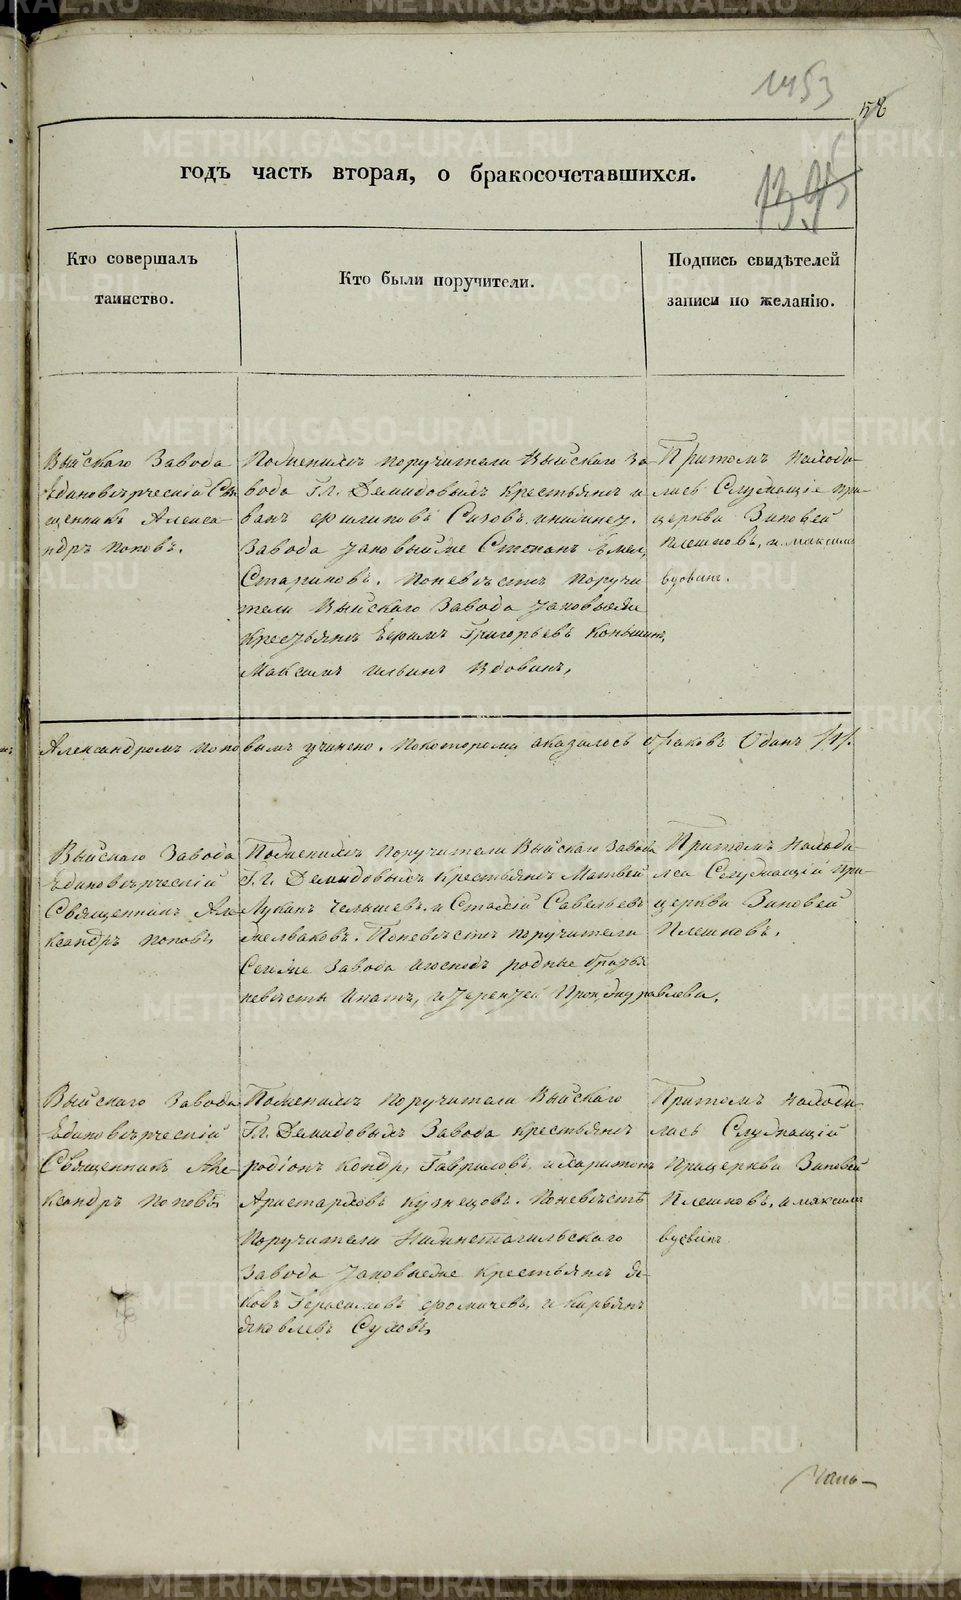 1453
58
годъ часть вторая, о бракосочетавшихся.
1395
Кто совершалъ
таинство.
Кто были поручители.
Подпись свидѣтелей
записи по желанію.
Выйскаго Завода
Единовѣрческій Свя
щенникъ Алекса
ндръ Поповъ.
Поженихѣ поручители Выйскаго За
вода Гг. Демидовыхъ крестьянѣ и
ванъ Филиповъ Сизовъ. инижнет.
Завода таковыйже Степанъ Емел.
Стариковъ. Поневѣстѣ Поручи
тели Выйскаго Завода таковыеже
крестьянѣ Ефимъ Григорьевъ Коньшинъ,
Максимъ ильинъ Вдовинъ,
Притомъ находи-
лись Служащіе при
церкви Зиновей
Плешковъ, и максим
Александромъ Поповымъ учинено. Покоторому оказалось браковъ Одинъ /1/.
Выйскаго Завода
Единовѣрческій
Священникъ Але
ксандръ Поповъ
Поженихѣ Поручители Выйскаго Завода
Гг. Демидовыхъ Крестьянѣ Матвей
Лукинъ Челышевъ. и Савельевъ
Поневѣстѣ поручители
Завода родные братья
невѣсты Игнатъ, и Терентей Журавлевы.
Притомъ Находи-
лся Служащій при
церкви Зиновей
Плешковъ.
Выйскаго Завода
Единовѣрческій
Священникъ Але
ксандръ Поповъ
Поженихѣ Поручители Выйскаго
Гг. Демидовыхъ Завода крестьянѣ
родіонъ Кондр, Гавриловъ, ихаритонъ
Аристарховъ Кузнецовъ. Поневѣстѣ
Поручители Нижнетагильскаго
Завода таковыеже крестьянѣ я-
ковъ Герасимовъ Фомичевъ, и Кирьянъ
яковлевъ Суховъ,
Притомъ находи
лись Служащій
Прицеркви Зиновей
Плешковъ, и максим